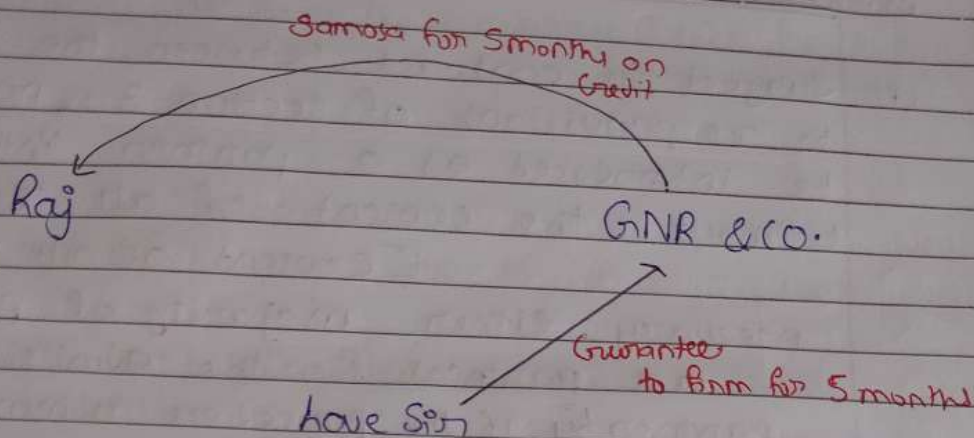 Samosa for 5 months on
Credit
Raj
GNR & CO.
Guarantee
to firm for 5 months
Love Sir